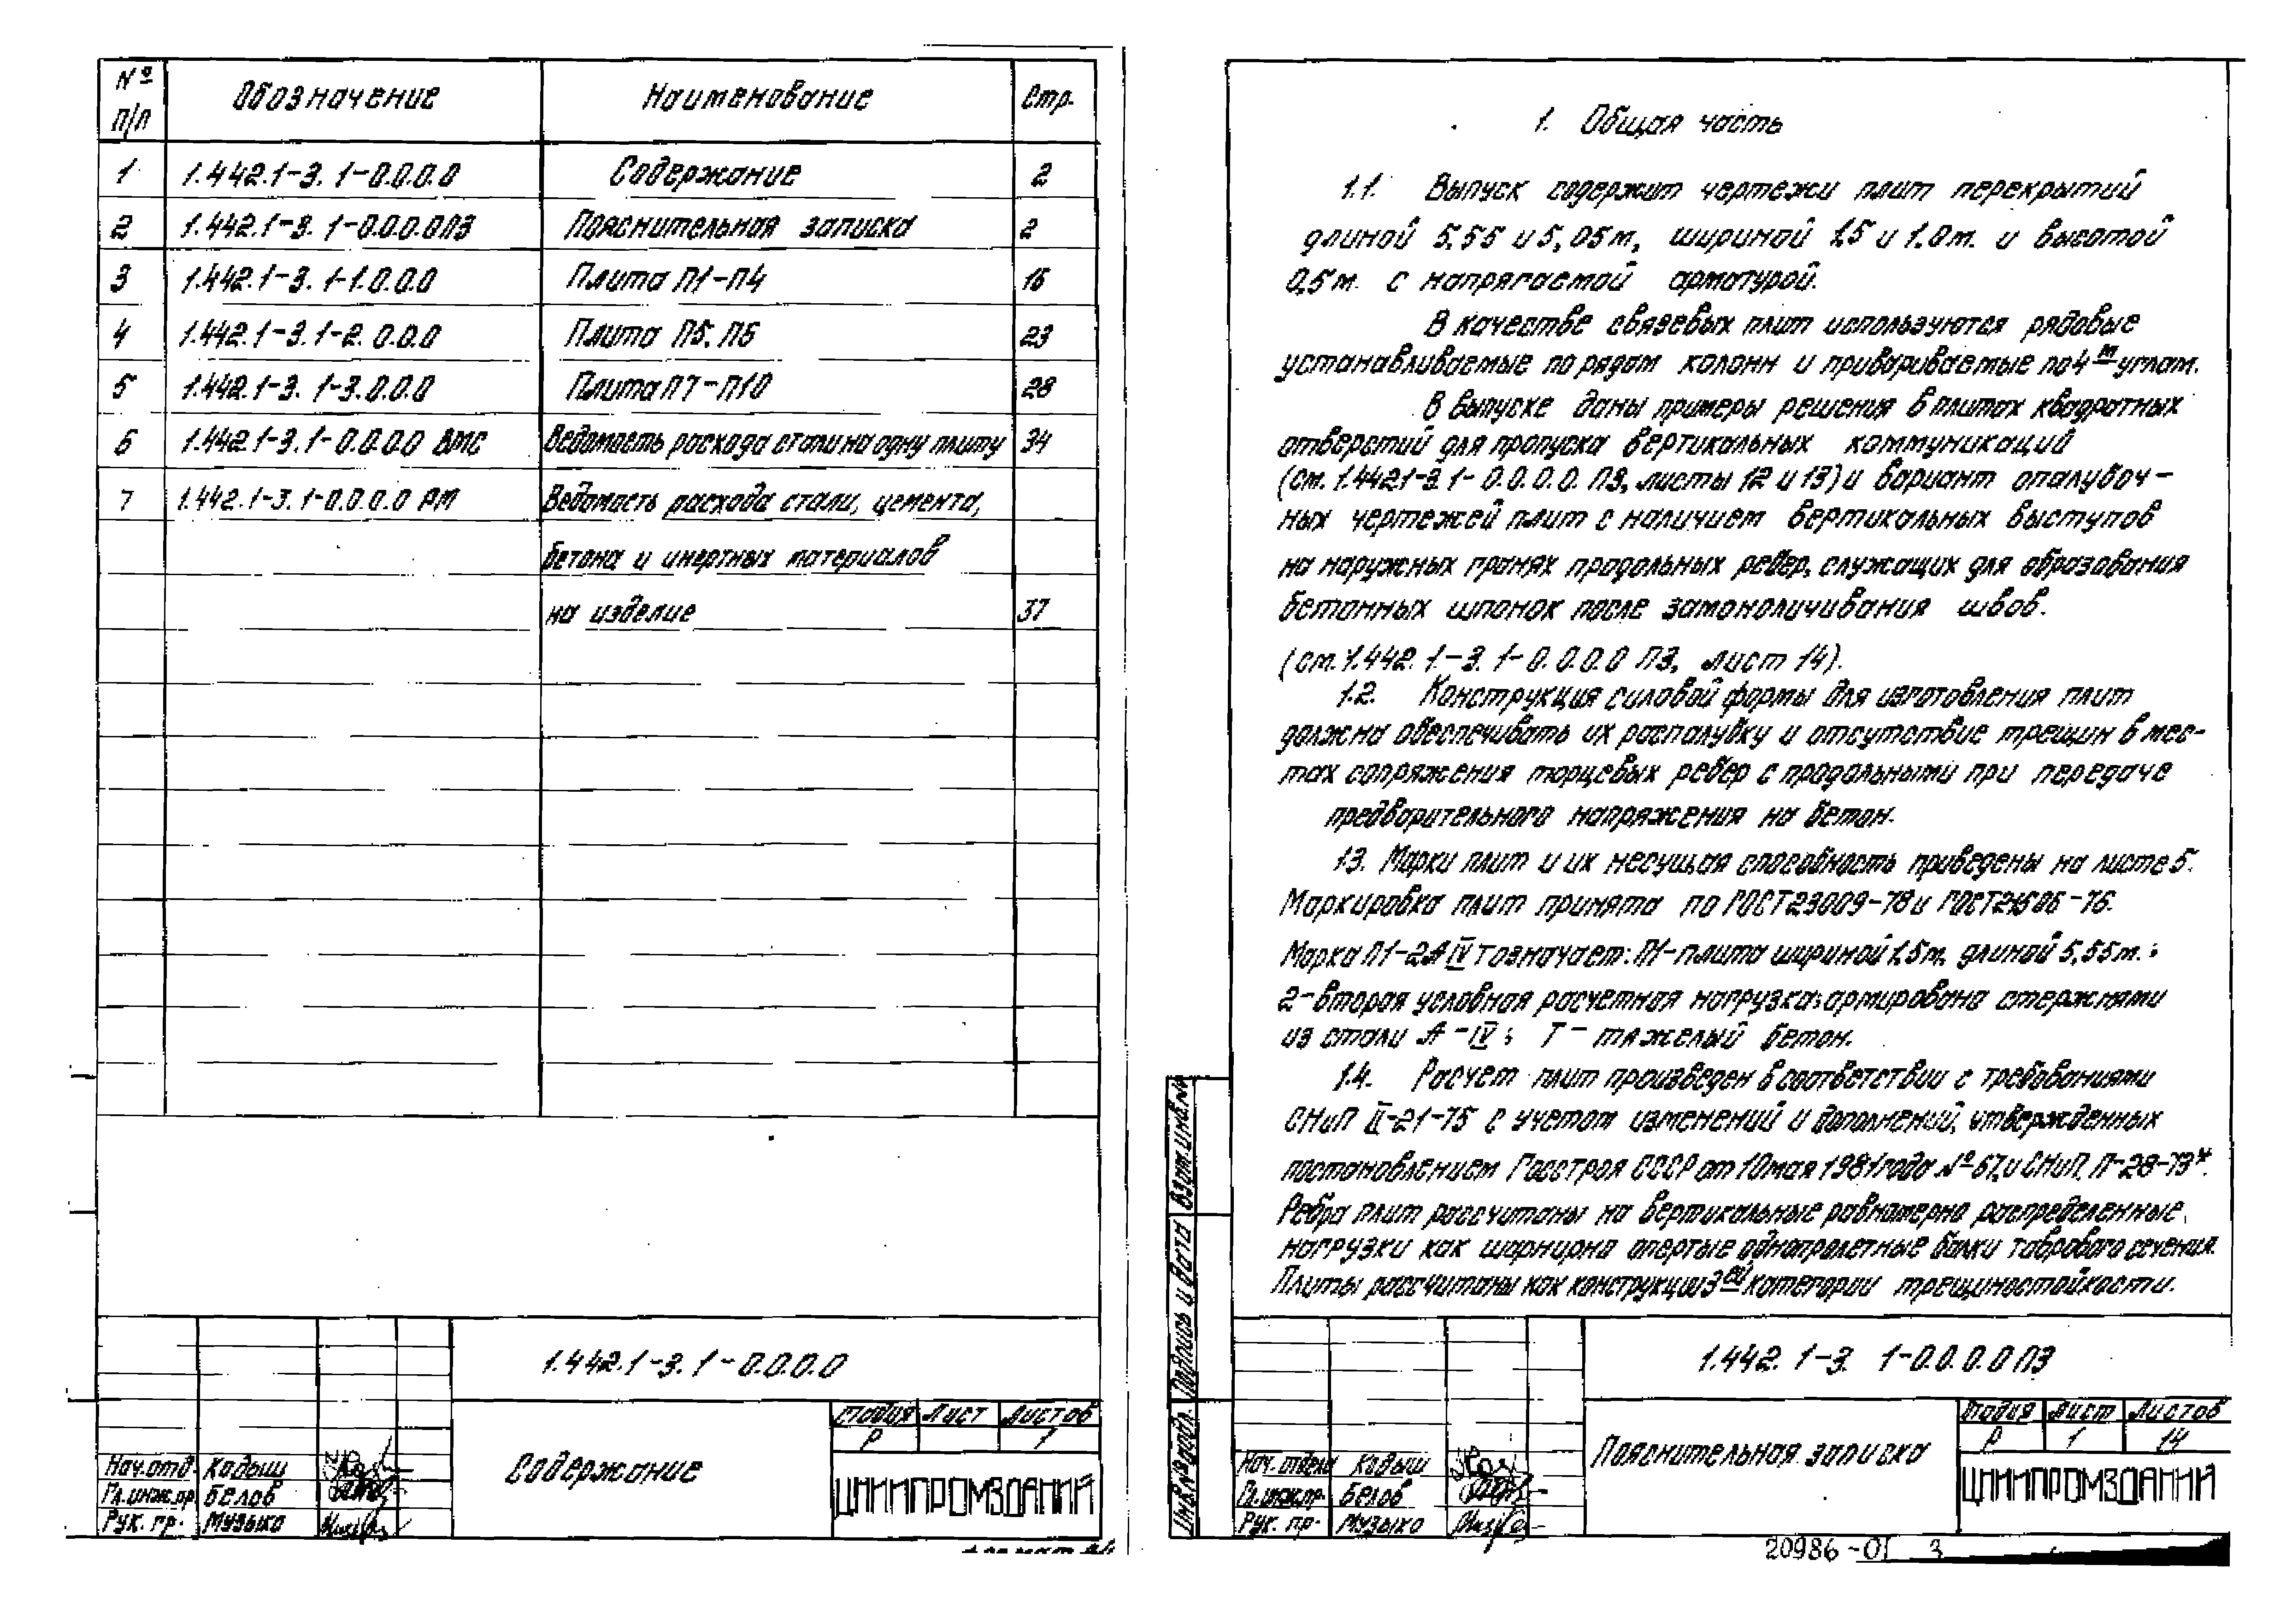 № п/п Обозначение Наименование Стр.
1 1.442.1-3. 1-0.0.0.0 Содержание 2
2 1.442.1-3. 1-0.0.0.0ПЗ Пояснительная записка 2
3 1.442.1-3. 1-1.0.0.0 Плита П1-П4 16
4 1.442.1-3. 1-2.0.0.0 Плита П5, П6 23
5 1.442.1-3. 1-3.0.0.0 Плита П7-П10 28
6 1.442.1-3. 1-0.0.0.0 ВМС Ведомость расхода стали на одну плиту 34
7 1.442.1-3. 1-0.0.0.0 РМ Ведомость расхода стали, цемента,
бетона и инертных материалов
на изделие 37
1.442.1-3. 1-0.0.0.0
Содержание
Стадия Лист Листов
Р 1
ЦНИИПРОМЗДАНИЙ
Нач.отд. Кодыш
Гл.инж.пр. Белов
Рук. гр. Музыко
1. Общая часть
1.1. Выпуск содержит чертежи плит перекрытий
длиной 5,55 и 5,05м, шириной 1,5 и 1.0м. и высотой
0,5м. с напрягаемой арматурой.
В качестве связевых плит используются рядовые
устанавливаемые по рядам колонн и привариваемые по 4м углам.
В выпуске даны примеры решения в плитах квадратных
отверстий для пропуска вертикальных коммуникаций
(см. 1.442.1-3. 1-0.0.0.0. ПЗ, листы 12 и 13) и вариант опалубоч-
ных чертежей плит с наличием вертикальных выступов
на наружных гранях продольных ребер, служащих для образования
бетонных шпонок после замоноличивания швов.
(см. 1.442.1-3. 1-0.0.0.0 ПЗ, лист 14).
1.2. Конструкция силовой формы для изготовления плит
должна обеспечивать их распалубку и отсутствие трещин в мес-
тах сопряжения торцевых ребер с продольными при передаче
предварительного напряжения на бетон.
1.3. Марки плит и их несущая способность приведены на листе 5.
Маркировка плит принята по ГОСТ 23009-78 и ГОСТ 21506-76.
Марка П1-2А IV Т означает: П1-плита шириной 1,5м, длиной 5,55м.;
2-вторая условная расчетная нагрузка; армирована стержнями
из стали А-IV; Т- тяжелый бетон.
1.4. Расчет плит произведен в соответствии с требованиями
СНиП II-21-75 с учетом изменений и дополнений, утвержденных
постановлением Госстроя СССР от 10 мая 1981 года № 67, и СНиП. П-28-73*.
Ребра плит рассчитаны на вертикальные равномерно распределенные
нагрузки как шарнирно опертые однопролетные балки таврового сечения.
Плиты рассчитаны как конструкции 3ей категории трещиностойкости.
Инв.№ подл. Подпись и дата Взам.инв.№
1.442.1-3. 1-0.0.0.0 ПЗ
Пояснительная записка
Стадия Лист Листов
Р 1 14
ЦНИИПРОМЗДАНИЙ
Нач. отдела Кодыш
Гл.инж.пр. Белов
Рук. гр. Музыко
20986-01 3